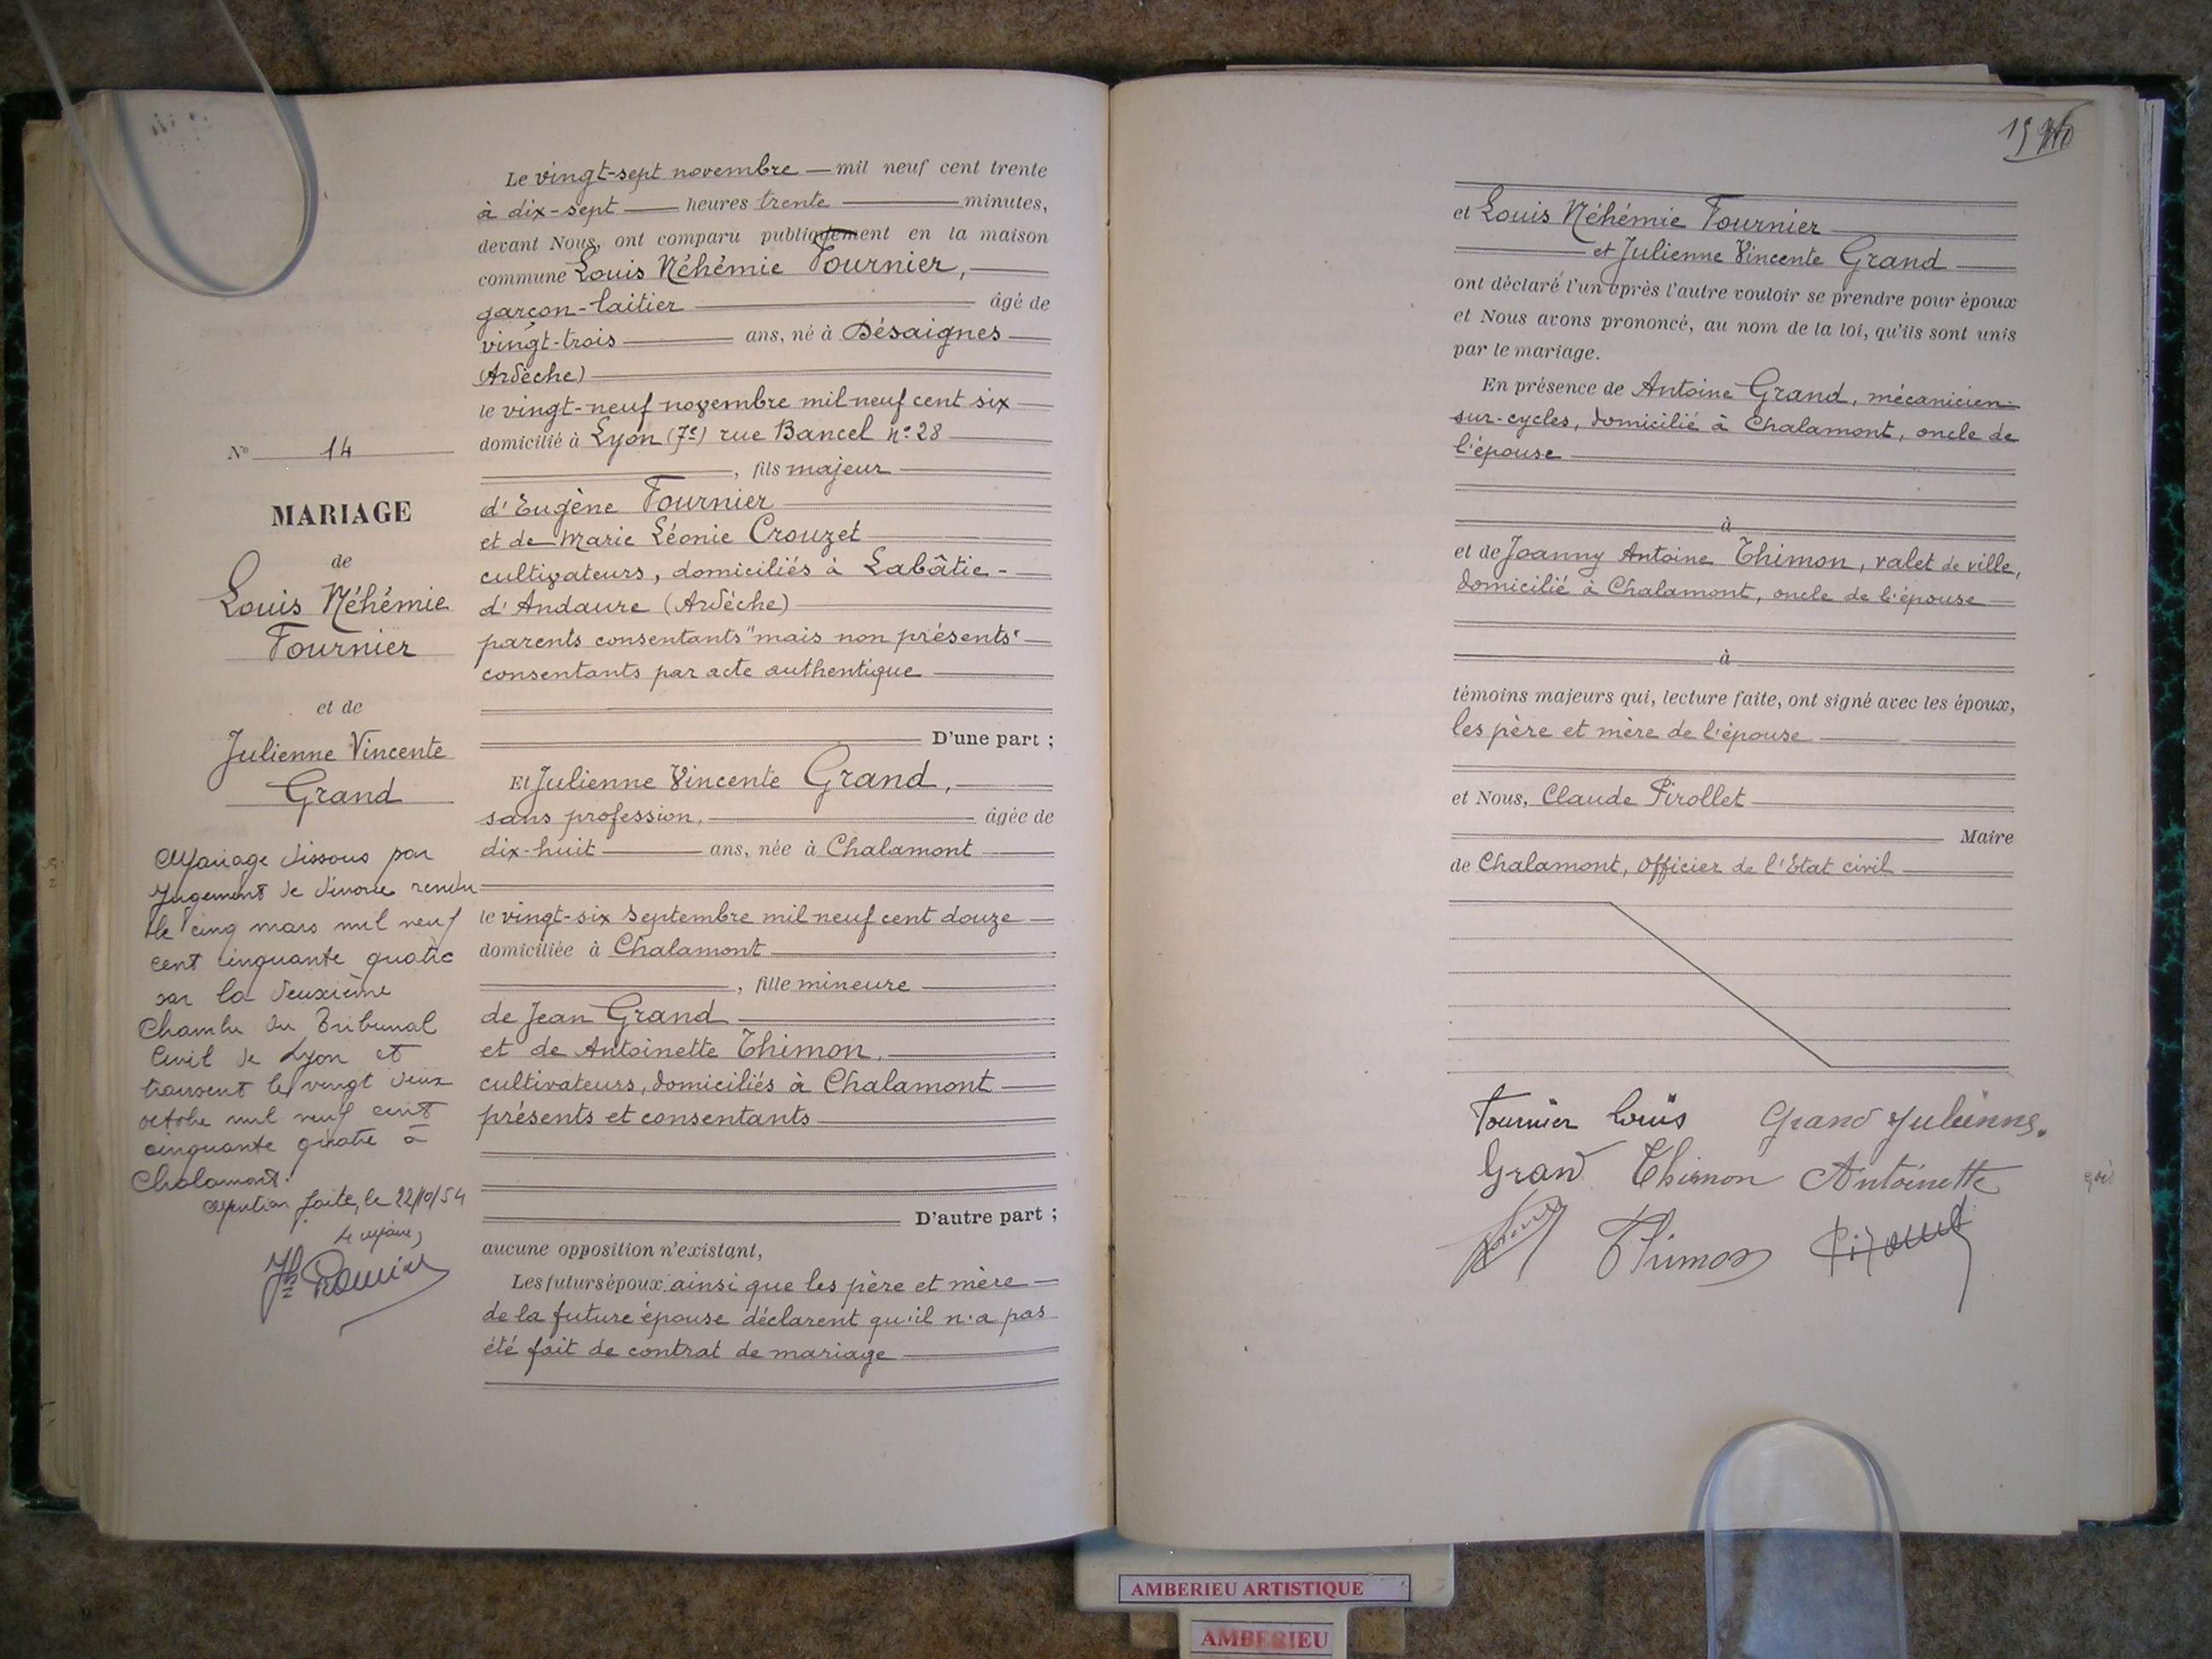 N° 14
MARIAGE
de
Louis Néhémie
Fournier
et de
Julienne Vincente
Grand
Mariage dissous par
jugement de divorce rendu
le cinq mars mil neuf
cent cinquante quatre
par la deuxième
Chambre du Tribunal
Civil de Lyon et
transcrit le vingt deux
octobre mil neuf cent
cinquante quatre à
Chalamont.
Mention faite, le 22/10/54
Le Maire,
Le vingt-sept novembre mil neuf cent trente
à dix-sept heures trente minutes,
devant Nous, ont comparu publiquement en la maison
commune Louis Néhémie Fournier,
garçon-laitier âgé de
vingt-trois ans, né à Désaignes
(Ardèche)
le vingt-neuf novembre mil neuf cent six
domicilié à Lyon (7e) rue Bancel n° 28
, fils majeur
d'Eugène Fournier
et de Marie Léonie Crouzet
cultivateurs, domiciliés à Labâtie-
d'Andaure (Ardèche)
parents consentants "mais non présents"
consentants par acte authentique
D'une part ;
Et Julienne Vincente Grand,
sans profession, âgée de
dix-huit ans, née à Chalamont
le vingt-six septembre mil neuf cent douze
domiciliée à Chalamont
, fille mineure
de Jean Grand
et de Antoinette Thimon,
cultivateurs, domiciliés à Chalamont
présents et consentants
D'autre part ;
aucune opposition n'existant,
Les futurs époux ainsi que les père et mère
de la future épouse déclarent qu'il n'a pas
été fait de contrat de mariage
19
et Louis Néhémie Fournier
et Julienne Vincente Grand
ont déclaré l'un après l'autre vouloir se prendre pour époux
et Nous avons prononcé, au nom de la loi, qu'ils sont unis
par le mariage.
En présence de Antoine Grand, mécanicien-
sur-cycles, domicilié à Chalamont, oncle de
l'épouse
à
et de Joanny Antoine Thimon, valet de ville,
domicilié à Chalamont, oncle de l'épouse
à
témoins majeurs qui, lecture faite, ont signé avec les époux,
les père et mère de l'épouse
et Nous, Claude Pirollet
Maire
de Chalamont, Officier de l'Etat civil
Fournier Louis Grand Julienne.
Grand Thimon Antoinette
Thimon
AMBERIEU ARTISTIQUE
AMBERIEU